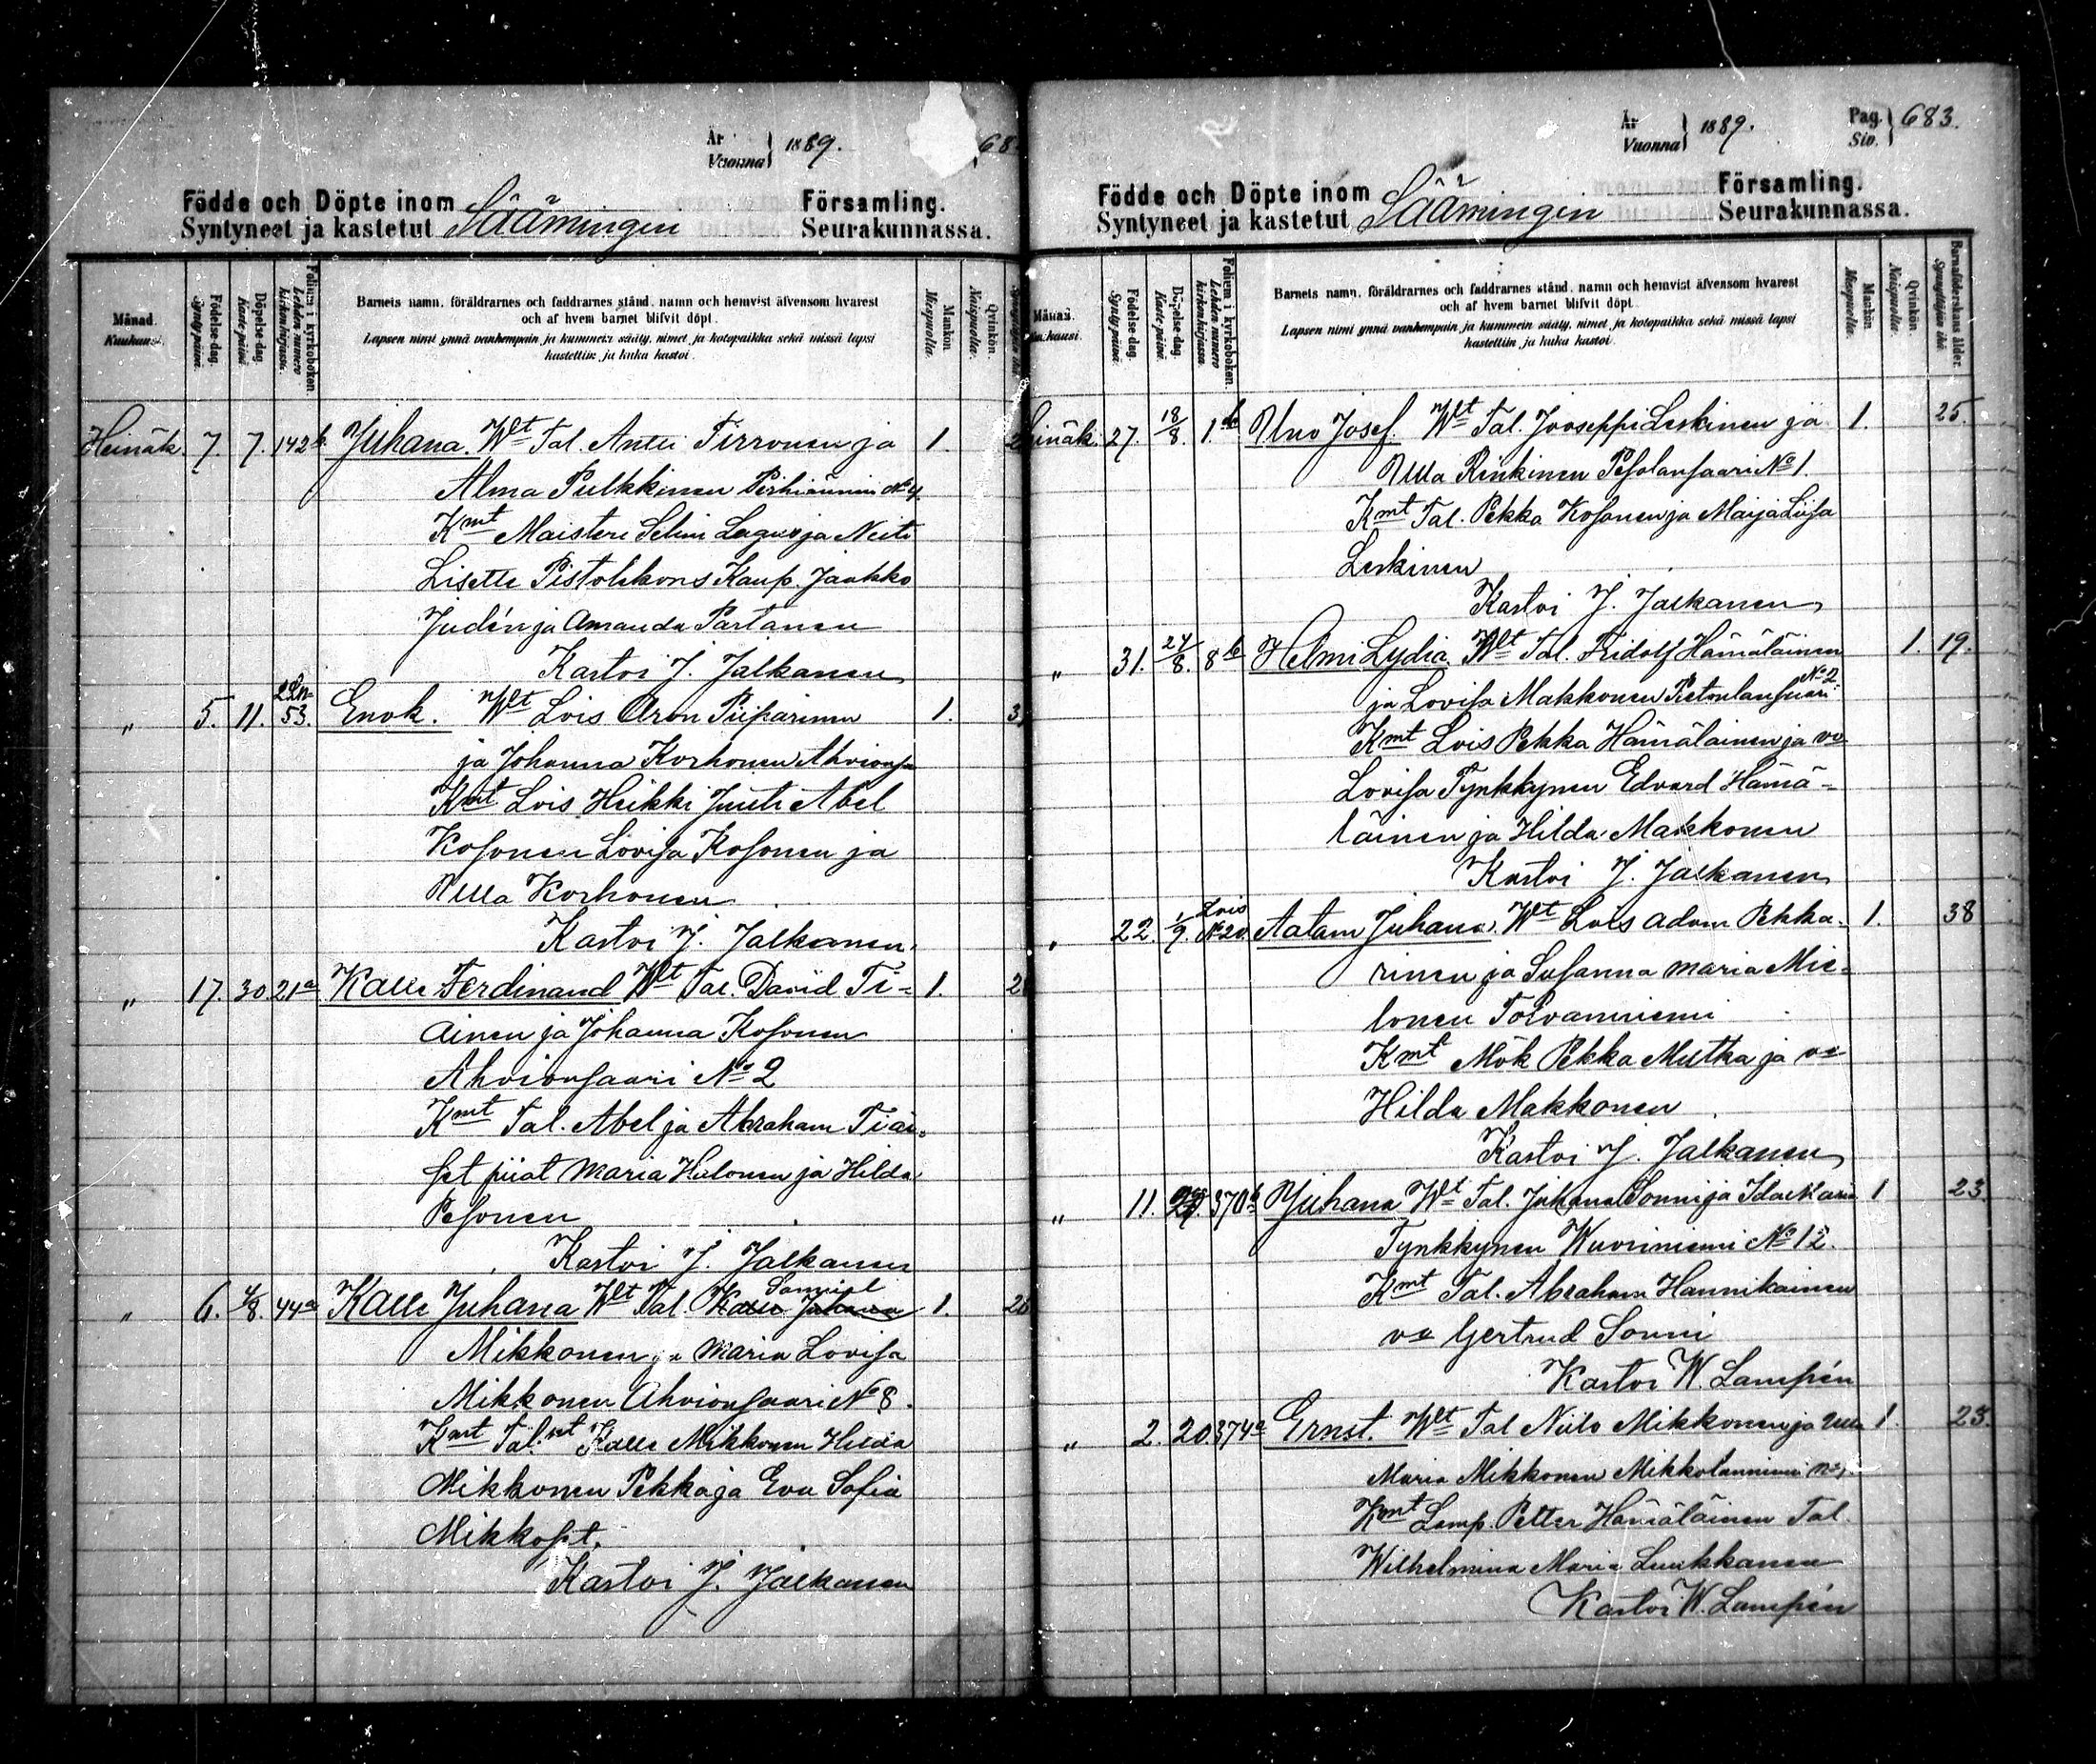 År
Vuonna } 1889.
68
Födde och Döpte inom Säämingin Församling.
Syntyneet ja kastetut Seurakunnassa.
Månad. Kuukausi.
Födelse-dag. Syntypäivä.
Döpelse-dag. Kastepäivä
Folium i kyrkoboken. Lehden numero kirkonkirjassa.
Barnets namn, föräldrarnes och faddrarnes stånd, namn och hemvist äfvensom hvarest
och af hvem barnet blifvit döpt.
Lapsen nimi ynnä vanhempain ja kummein sääty, nimet ja kotopaikka sekä missä lapsi
kastettiin ja kuka kastoi.
Mankön. Miespuolia.
Qvinkön. Naispuolia.
Heinäk. 7. 7. 142b. Juhana. Wlt Tal. Antti Tirronen ja 1.
Alma Pulkkinen Pirhiäniemi No 4
Kmt Maisteri Selim Lagus ja Neiti
Lisette Pistolekors Kaup. Jaakko
Judén ja Amanda Partanen
Kastoi J. Jalkanen
" 5. 11. 53. Enok. Wlt Lois Aron Piiparinen 1. 3
ja Johanna Korhonen Ahvions
Kmt Lois Heikki Juuti Abel
Kosonen Lovisa Kosonen ja
Ulla Korhonen
Kastoi J. Jalkanen.
" 17. 30 21a Kalle Ferdinand Wlt Tal. David Ti= 1. 2
ainen ja Johanna Kosonen
Ahvionsaari No 2
Kmt Tal. Abel ja Abraham Tiai=
set piiat Maria Halonen ja Hilda
Pesonen
Kastoi J. Jalkanen
" 6. 4/8. 44a Kalle Juhana Wlt Tal. Kalle Juhana Samuel 1. 26
Mikkonen ja Maria Lovisa
Mikkonen Ahvionsaari No 8.
Kmt Tal.set Kalle Mikkonen Hilda
Mikkonen Pekka ja Eva Sofia
Mikkoset.
Kastoi J. Jalkanen
År
Vuonna } 1889.
Pag.
Siv. } 683.
Födde och Döpte inom Säämingin Församling.
Syntyneet ja kastetut Seurakunnassa.
Månad. Kuukausi.
Födelse-dag. Syntypäivä.
Döpelse-dag. Kastepäivä.
Folium i kyrkoboken. Lehden numero kirkonkirjassa.
Barnets namn, föräldrarnes och faddrarnes stånd, namn och hemvist äfvensom hvarest
och af hvem barnet blifvit döpt.
Lapsen nimi ynnä vanhempain ja kummein sääty, nimet ja kotopaikka sekä missä lapsi
kastettiin ja kuka kastoi.
Mankön. Miespuolia.
Qvinkön. Naispuolia.
Barnaföderskans ålder. Synnyttäjän ikä.
einäk. 27. 18/8. 1. Uno Josef. Wlt Tal. Jooseppi Leskinen ja 1. 25.
Ulla Rinkinen Pesolansaari No 1.
Kmt Tal. Pekka Kosonen ja Maija Liisa
Leskinen
Kastoi J. Jalkanen
" 31. 24/8. 8b Helmi Lydia. Wlt Tal. Fridolf Hämäläinen 1. 19.
ja Lovisa Makkonen Pietolansaari No 2.
Kmt Lois Pekka Hämäläinen ja vo
Lovisa Tynkkynen Edvard Hämä=
läinen ja Hilda Makkonen
Kastoi J. Jalkanen
" 22. 1/9. Lois No 20. Aatam Juhana. Wlt Lois Adam Pekka- 1. 38
rinen ja Susanna Maria Mie=
lonen Tolvanniemi
Kmt Mök Pekka Mutka ja vo
Hilda Makkonen
Kastoi J. Jalkanen
" 11. 370b Juhana Wlt Tal. Juhana Sonni ja Ida Maria 1 23
Tynkkynen Wuoriniemi No 12.
Kmt Tal. Abraham Hannikainen
vo Gertrud Sonni
Kastoi W. Lampén
" 2. 20. 374a Ernst. Wlt Tal Niilo Mikkonen ja Ulla 1. 23.
Maria Mikkonen Mikkolanniemi No 1.
Kmt Lamp. Petter Hämäläinen Tal.
Wilhelmina Maria Luukkanen
Kastoi W. Lampén